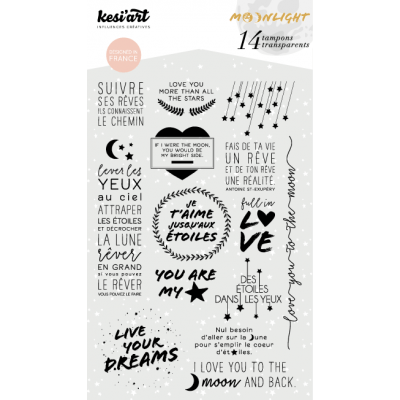 kesi'art
INFLUENCES CRÉATIVES
DESIGNED IN
FRANCE
MOONLIGHT
14 tampons
transparents
SUIVRE
SES RÊVES
ILS CONNAISSENT
LE CHEMIN
LOVE YOU
MORE THAN ALL
THE STARS
IF I WERE THE MOON,
YOU WOULD BE
MY BRIGHT SIDE.
FAIS DE TA VIE
UN RÊVE
ET DE TON RÊVE
UNE RÉALITÉ.
ANTOINE ST-EXUPÉRY
lever les
YEUX
au ciel
ATTRAPER
LES ÉTOILES
ET DÉCROCHER
LA LUNE
rêver
EN GRAND
si vous pouvez
LE RÊVER
VOUS POUVEZ LE FAIRE
JE
T'AIME
JUSQU'AUX
ÉTOILES
full in
LOVE
love you to the moon
YOU ARE
MY
DES
ÉTOILES
DANS LES YEUX
LIVE
YOUR
DREAMS
Nul besoin
d'aller sur la lune
pour s'emplir le coeur
d'étoiles.
I LOVE YOU TO THE
moon AND BACK.